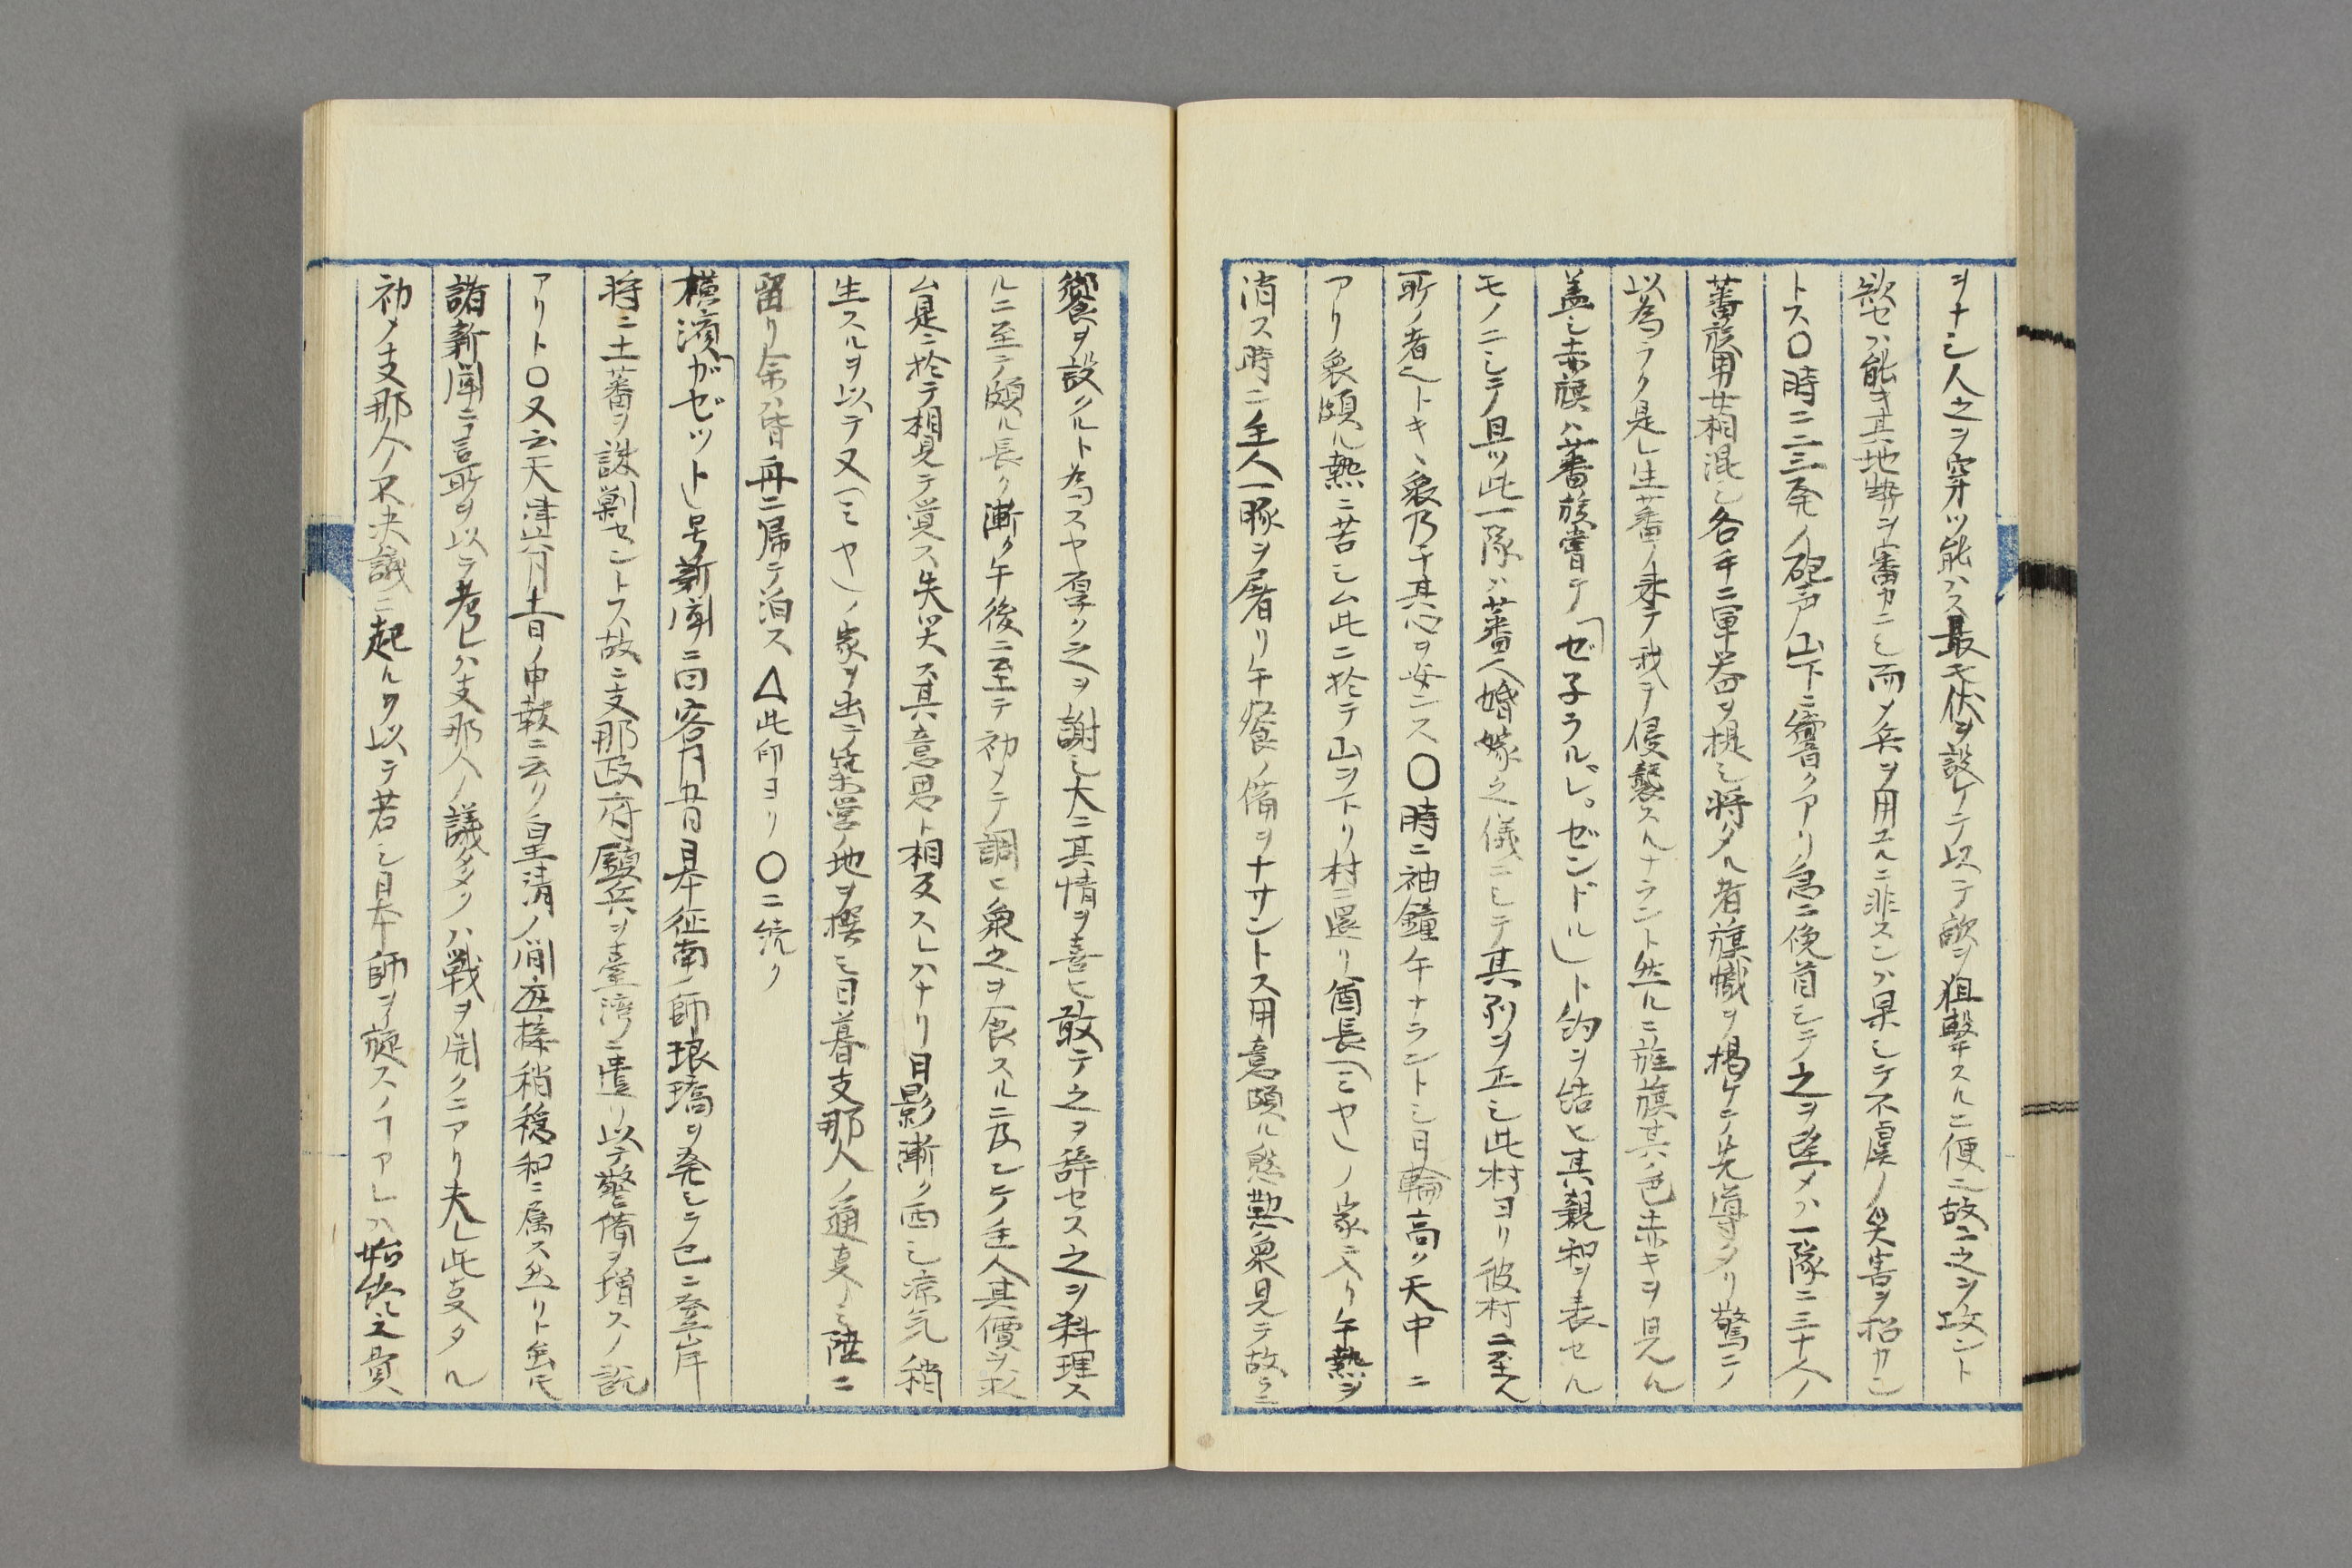 ヲナシ人之ヲ穿ツ能ハス最モ伏ヲ設ケテ以テ敵ヲ狙撃スルニ便ニ故ニ之ヲ攻ント
欲セハ能ク其地勢ヲ審カニシ而メ兵ヲ用ユルニ非スンハ果シテ不虞ノ災害ヲ招カン
トス〇時ニ二三発ノ砲声山下ニ響クアリ急ニ俛首シテ之ヲ望メハ一隊二三十人ノ
蕃族男女相混シ各手ニ軍器ヲ提シ将タル者旗幟ヲ掲ケテ先導タリ驚ニノ
以為ラク是レ生蕃ノ来テ我ヲ侵襲スルナラント然ルニ旌旗其ノ色赤キヲ見ル
蓋シ赤旗ハ蕃族嘗テ「ゼ子ラル」。ゼンドル」ト約ヲ結ヒ其親和ヲ表セル
モノニシテ且ツ此一隊ハ蕃人婚嫁之儀ニシテ其列ヲ正シ此村ヨリ彼村ニ至ル
所ノ者也トキヽ衆乃チ其心ヲ安ンス〇時ニ袖鐘午ナラントシ日輪高ク天中ニ
アリ衆頗ル熱ニ苦シム此ニ於テ山ヲ下リ村ニ還リ酋長「ミヤ」ノ家ニ入リ午熱ヲ
消ス時ニ主人一豚ヲ屠リ午餐ノ備ヲナサントス用意頗ル慇懃衆見テ故ラニ
饗ヲ設クルト為スヤ厚ク之ヲ謝シ大ニ其情ヲ喜ヒ敢テ之ヲ辞セス之ヲ料理ス
ルニ至テ頗ル長ク漸ク午後ニ至テ初メテ調ヒ衆之ヲ食スルニ及ンテ主人其價ヲ求
ム是ニ於テ相見テ覚ス失笑ス其意思ト相反スレハナリ日影漸ク西シ涼気稍
生スルヲ以テ又「ミヤ」ノ家ヲ出テ築営ノ地ヲ撰シ日暮支那人ノ通弁ト陸ニ
留リ余ハ皆舟ニ帰テ泊ス△此印ヨリ〇ニ続ク
横濱「ガゼット」号新聞ニ曰客月廿日日本征南ノ師琅𤩝ヲ発シテ已ニ登岸
将ニ土蕃ヲ誅剿セントス故ニ支那政府驟兵ヲ臺湾ニ遣リ以テ警備ヲ増スノ説
アリト〇又云天津六月十一日ノ申報ニ云リ皇清ノ間応接稍穏和ニ属ス然リト𧈧𪜈
諸新聞ニテ言所ヲ以テ考レハ支那人ノ議多クハ戦ヲ開クニアリ夫レ此支タル
初メ支那人ノ不決議ニ起ルヲ以テ若シ日本師ヲ旋スヿアレハ始終之費